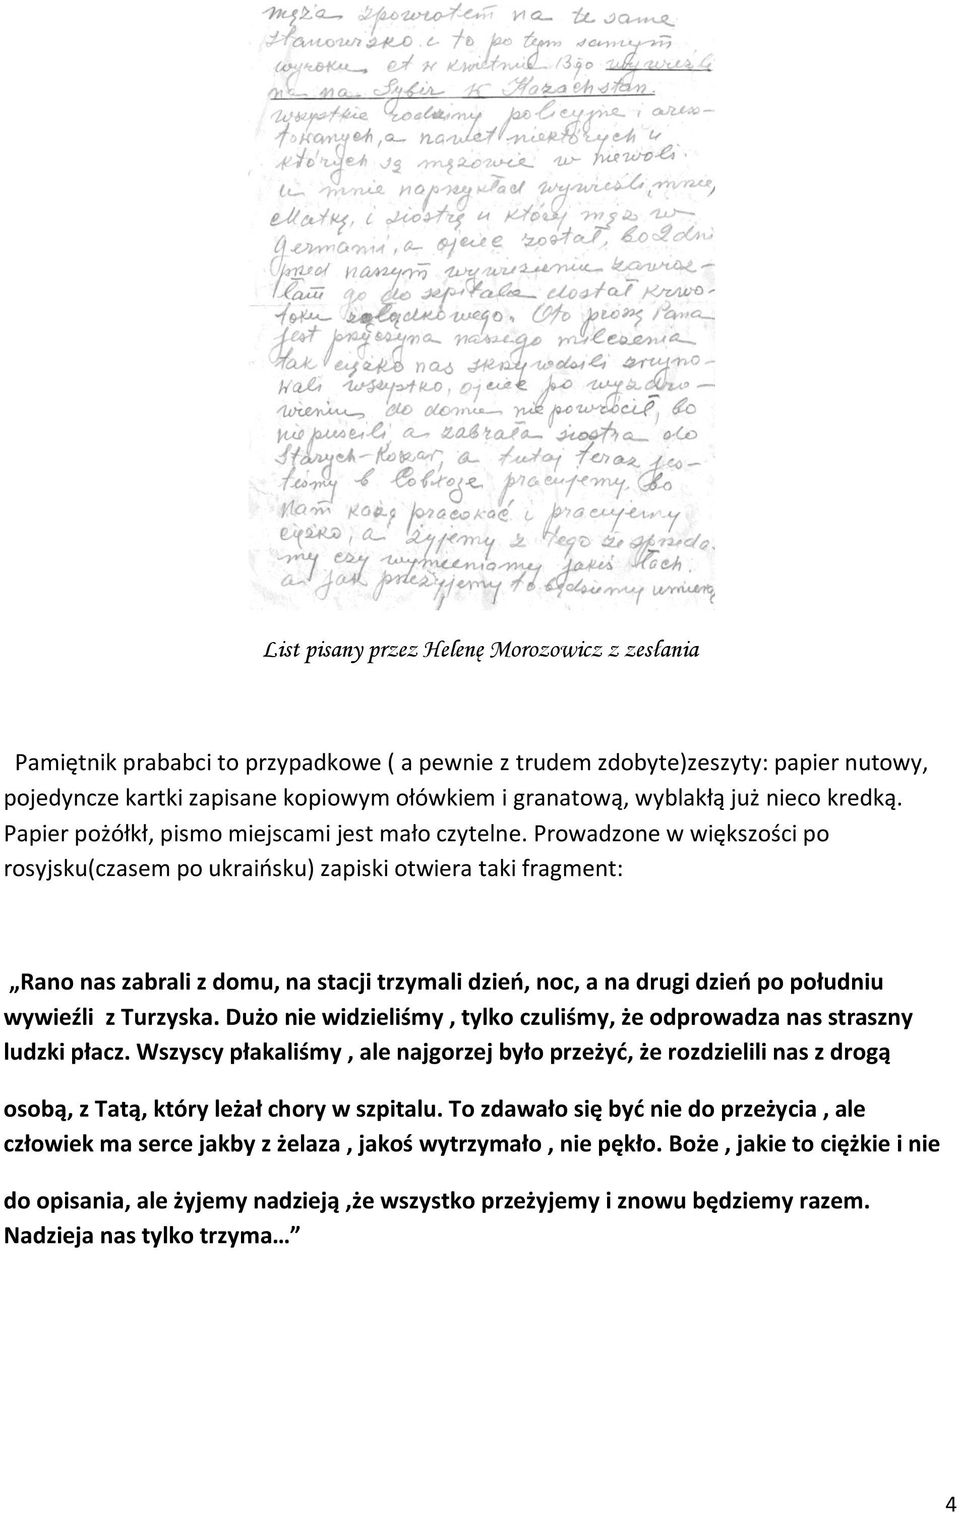 męża zpowrotem na te same
stanowisko i to po tem samym
wyroku. A w kwietniu 13go wywieźli
na na Sybir w Kazachstan.
wszystkie rodziny policyjne i aresz-
towanych, a nawet niektórych u
których są mężowie w niewoli.
u mnie naprzykład wywieśli, mnie,
Matkę, i siostrę u której mąż w
Germanii, a ojciec został, bo 2 dni
przed naszym wywiezieniu zawioz-
łam go do szpitala dostał krwo-
toku żołądkowego. Oto proszę Pana
jest przyczyna naszego milczenia
tak ciężko nas skrzywdzili zrujno-
wali wszystko, ojciec po wyzdro-
wieniu do domu nie powrócił, bo
nie puscili, a zabrała siostra do
Starych-Koszar, a tutaj teraz jes-
teśmy w pracujemy. Bo
nam każą pracować i pracujemy
ciężko, a żyjemy z tego że sprzeda.
my czy wymieniamy jakiś łach.
a jak przeżyjemy to będziemy umierą
List pisany przez Helenę Morozowicz z zesłania
Pamiętnik prababci to przypadkowe ( a pewnie z trudem zdobyte)zeszyty: papier nutowy,
pojedyncze kartki zapisane kopiowym ołówkiem i granatową, wyblakłą już nieco kredką.
Papier pożółkł, pismo miejscami jest mało czytelne. Prowadzone w większości po
rosyjsku(czasem po ukraińsku) zapiski otwiera taki fragment:
„Rano nas zabrali z domu, na stacji trzymali dzień, noc, a na drugi dzień po południu
wywieźli z Turzyska. Dużo nie widzieliśmy , tylko czuliśmy, że odprowadza nas straszny
ludzki płacz. Wszyscy płakaliśmy , ale najgorzej było przeżyć, że rozdzielili nas z drogą
osobą, z Tatą, który leżał chory w szpitalu. To zdawało się być nie do przeżycia , ale
człowiek ma serce jakby z żelaza , jakoś wytrzymało , nie pękło. Boże , jakie to ciężkie i nie
do opisania, ale żyjemy nadzieją ,że wszystko przeżyjemy i znowu będziemy razem.
Nadzieja nas tylko trzyma…”
4